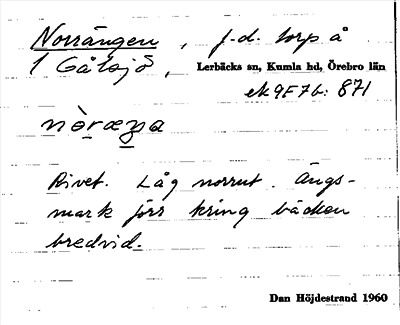 Norrängen, f.d. torp å
1 Gålsjö, Lerbäcks sn, Kumla hd, Örebro län
ek 9F7b: 871
nòræŋa
Rivet. Låg norrut. Ängs-
mark förr kring bäcken
bredvid.
Dan Höjdestrand 1960